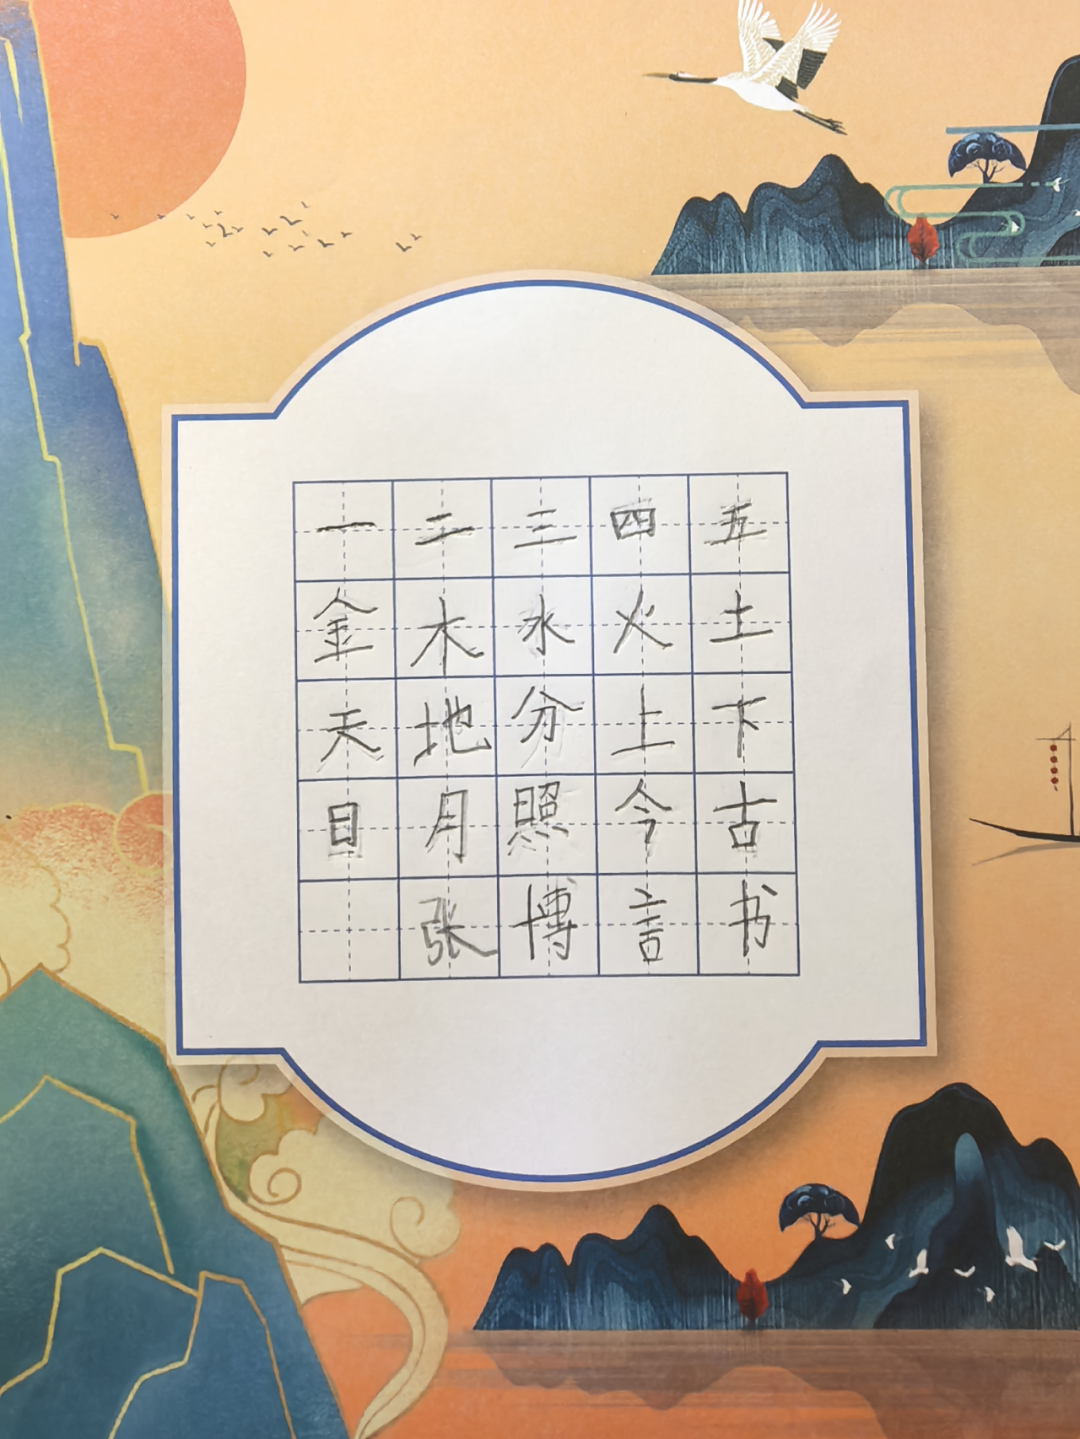 一二三四五
金木水火土
天地分上下
日月照今古
张博言书